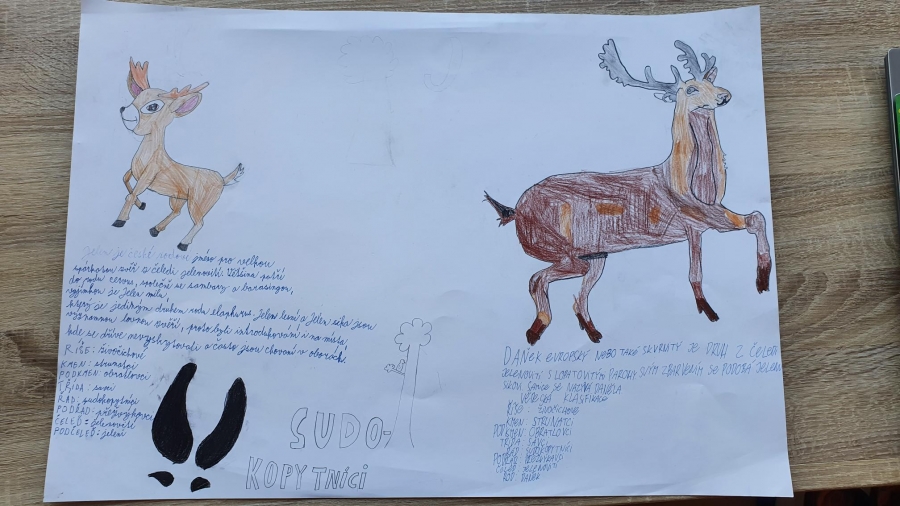 Jelen je české rodové jméno pro velkou
spárkatou zvěř z čeledi jelenovití. Většina patří
do rodu cervus, společně se sambary a barasingou,
vyjímkou je jelen milu,
který je jediným druhem rodu elaphurus. Jelen lesní a jelen sika jsou
významnou lovnou zvěří, proto byli introdukováni i na místa,
kde se dříve nevyskytovali a často jsou chováni v oborách.
ŘÍŠE: živočichové
KMEN: strunatci
PODKMEN: obratlovci
TŘÍDA: savci
ŘÁD: sudokopytníci
PODŘÁD: přežvýkavci
ČELEĎ = jelenovití
PODČELEĎ: jeleni
SUDO-
KOPYTNÍCI
DANĚK EVROPSKÝ NEBO TAKÉ SKVRNITÝ JE DRUH Z ČELEDI
JELENOVITÍ S LOPATOVITÝMI PAROHY SVÝM ZBARVENÍM SE PODOBÁ JELENU
SIKOVI. SAMICE SE NAZÝVÁ DANĚLA
VĚDECKÁ KLASIFIKACE
ŘÍŠE: ŽIVOČICHOVÉ
KMEN: STRUNATCI
PODKMEN: OBRATLOVCI
TŘÍDA: SAVCI
ŘÁD: SUDOKOPYTNÍCI
PODŘÁD: PŘEŽVÝKAVCI
ČELEĎ: JELENOVITÍ
ROD: DANĚK